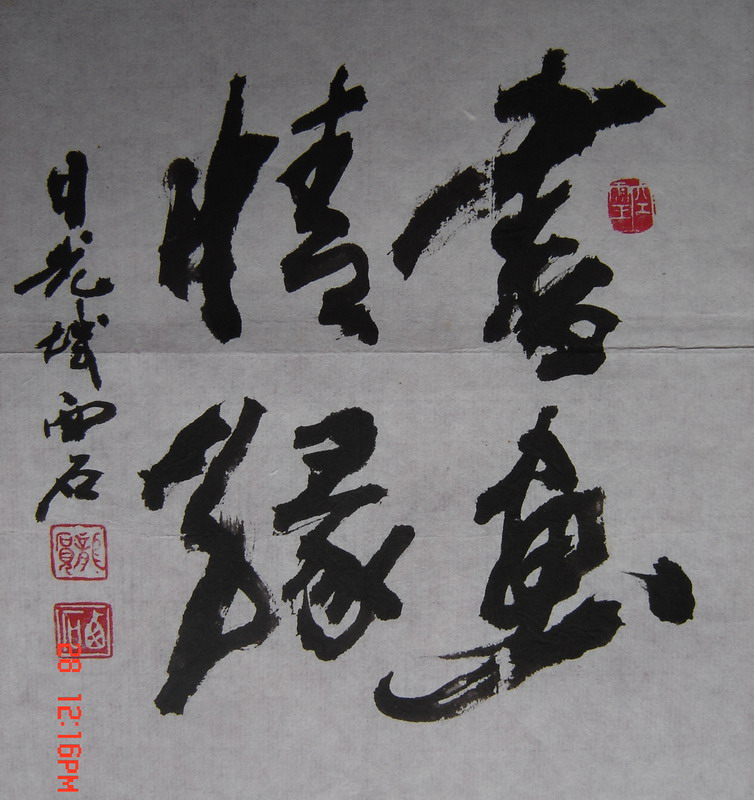 書畫
情緣
日光城西石
28 12:16PM